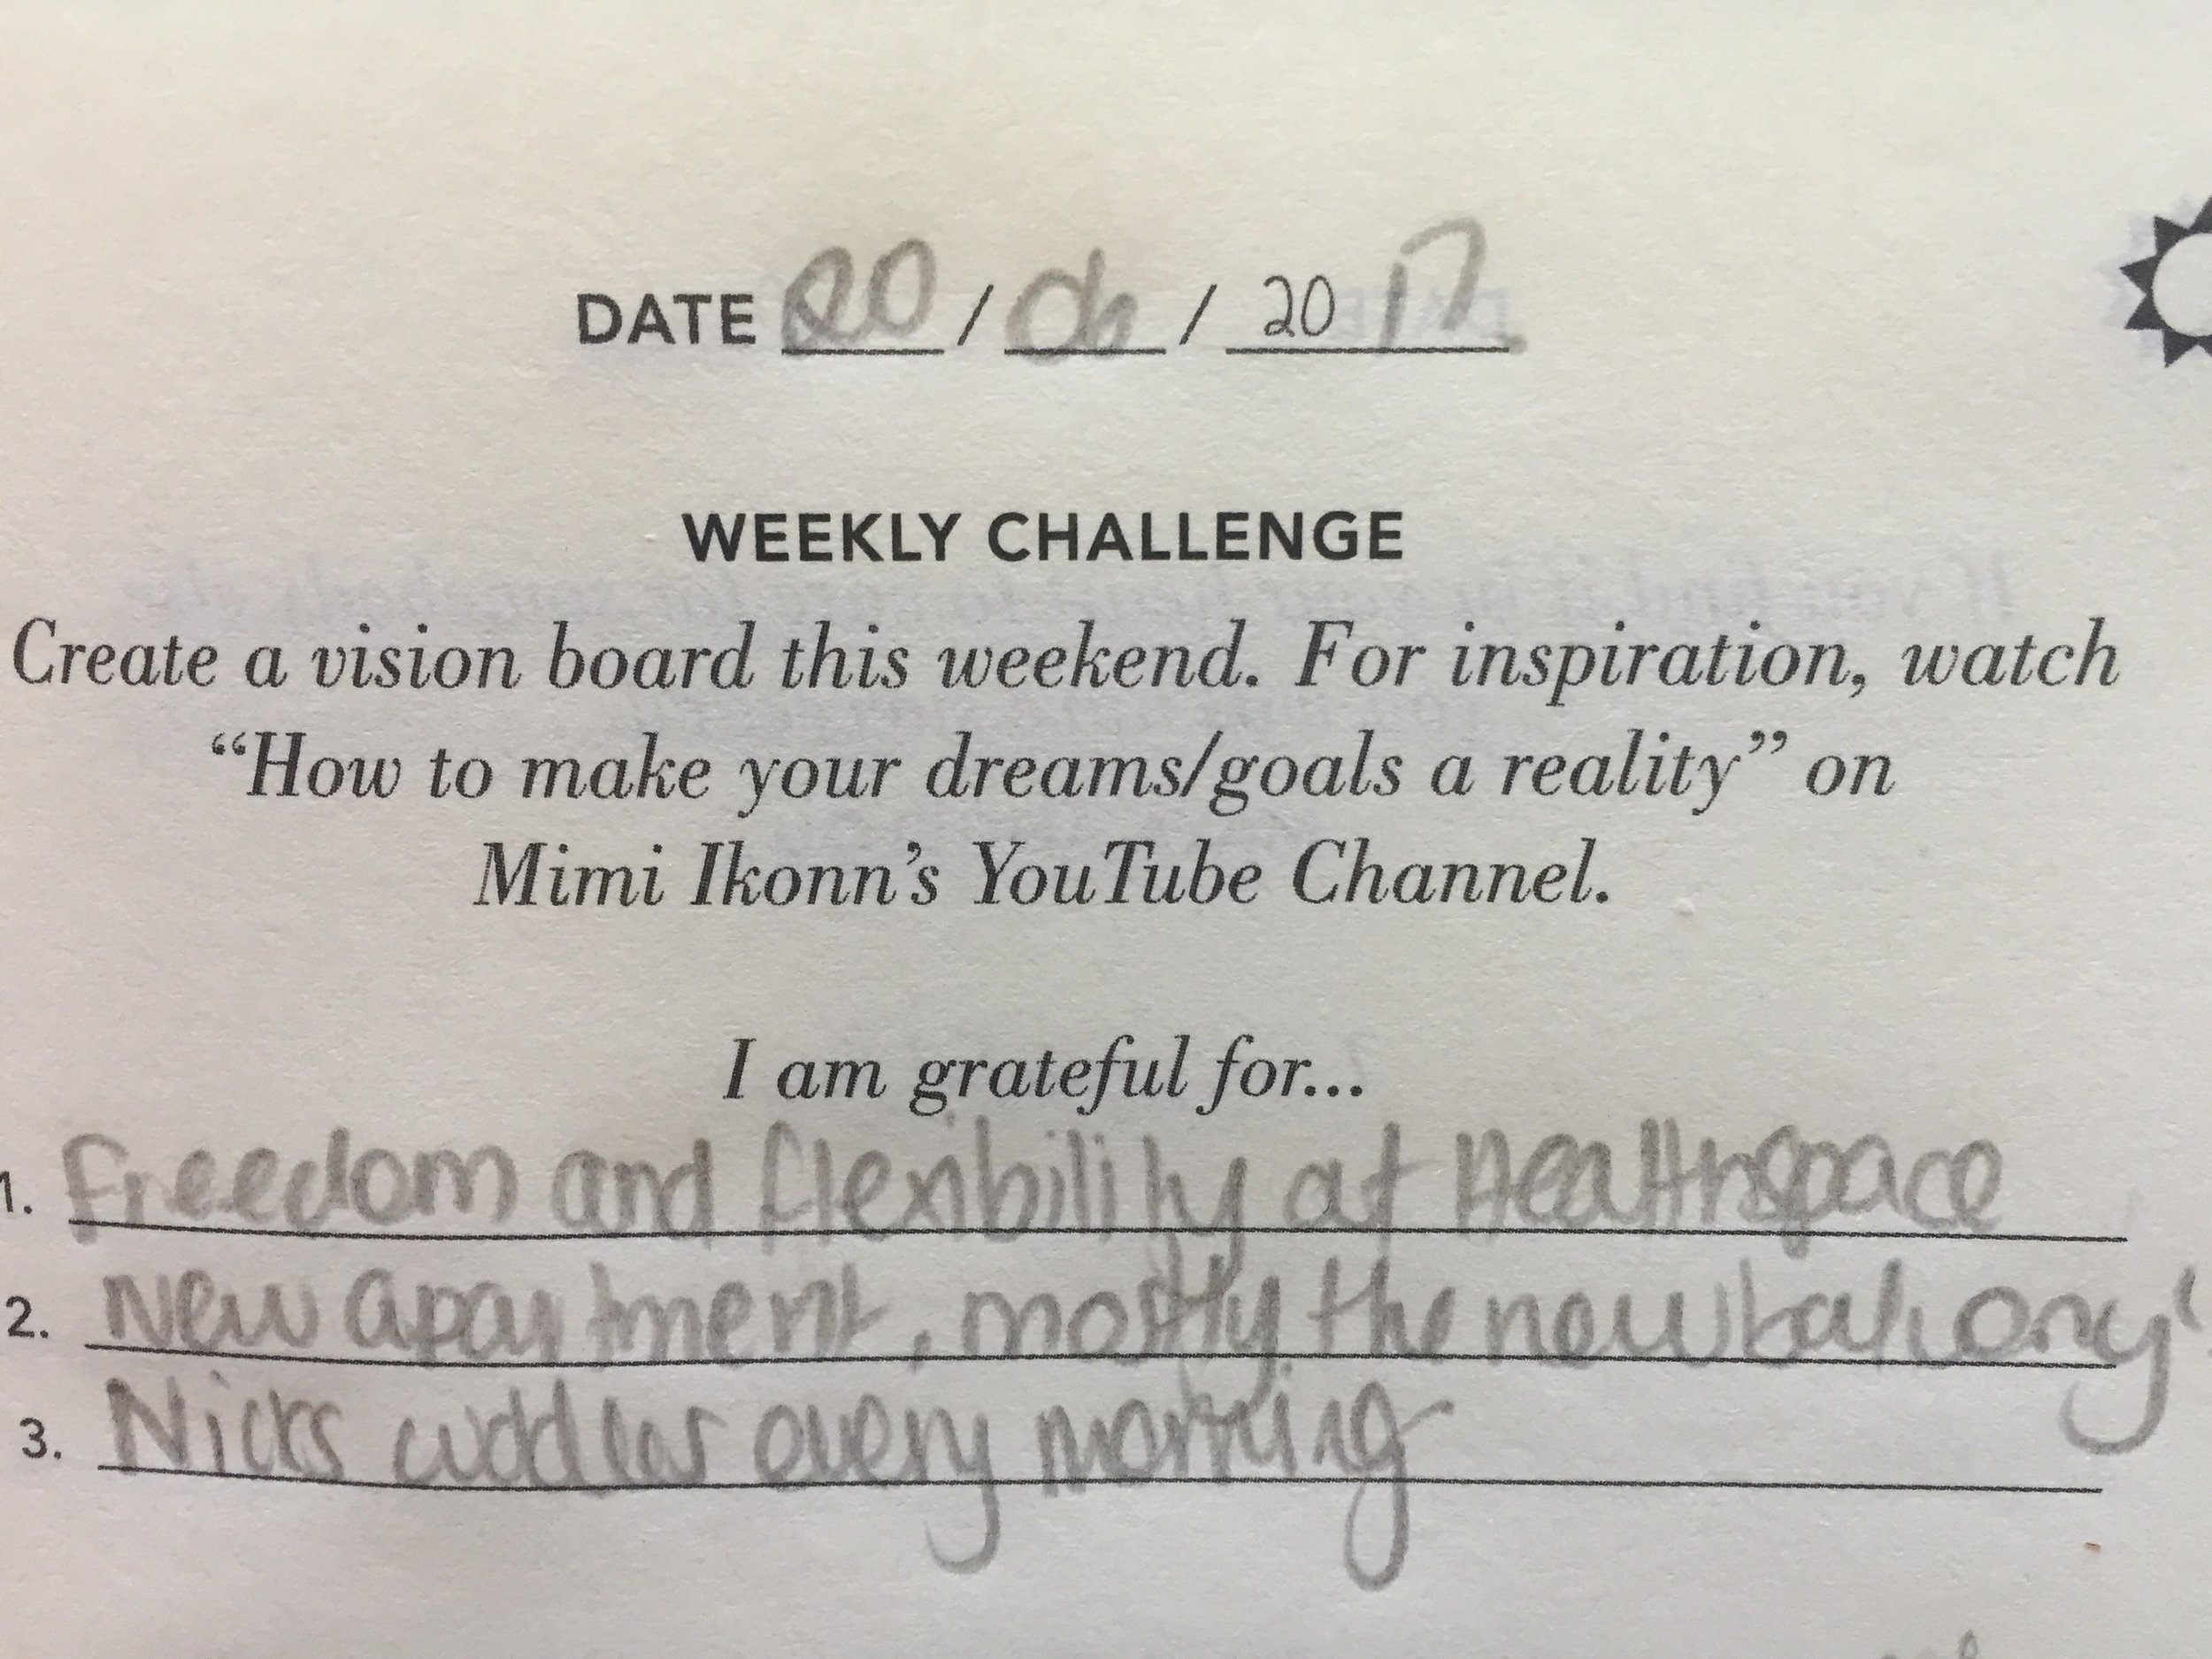 DATE 20 / 06 / 20 17
WEEKLY CHALLENGE
Create a vision board this weekend. For inspiration, watch
“How to make your dreams/goals a reality” on
Mimi Ikonn’s YouTube Channel.
I am grateful for...
1. Freedom and flexibility at Healthspace
2. New apartment, mostly the new balcony!
3. Nicks cuddles every morning